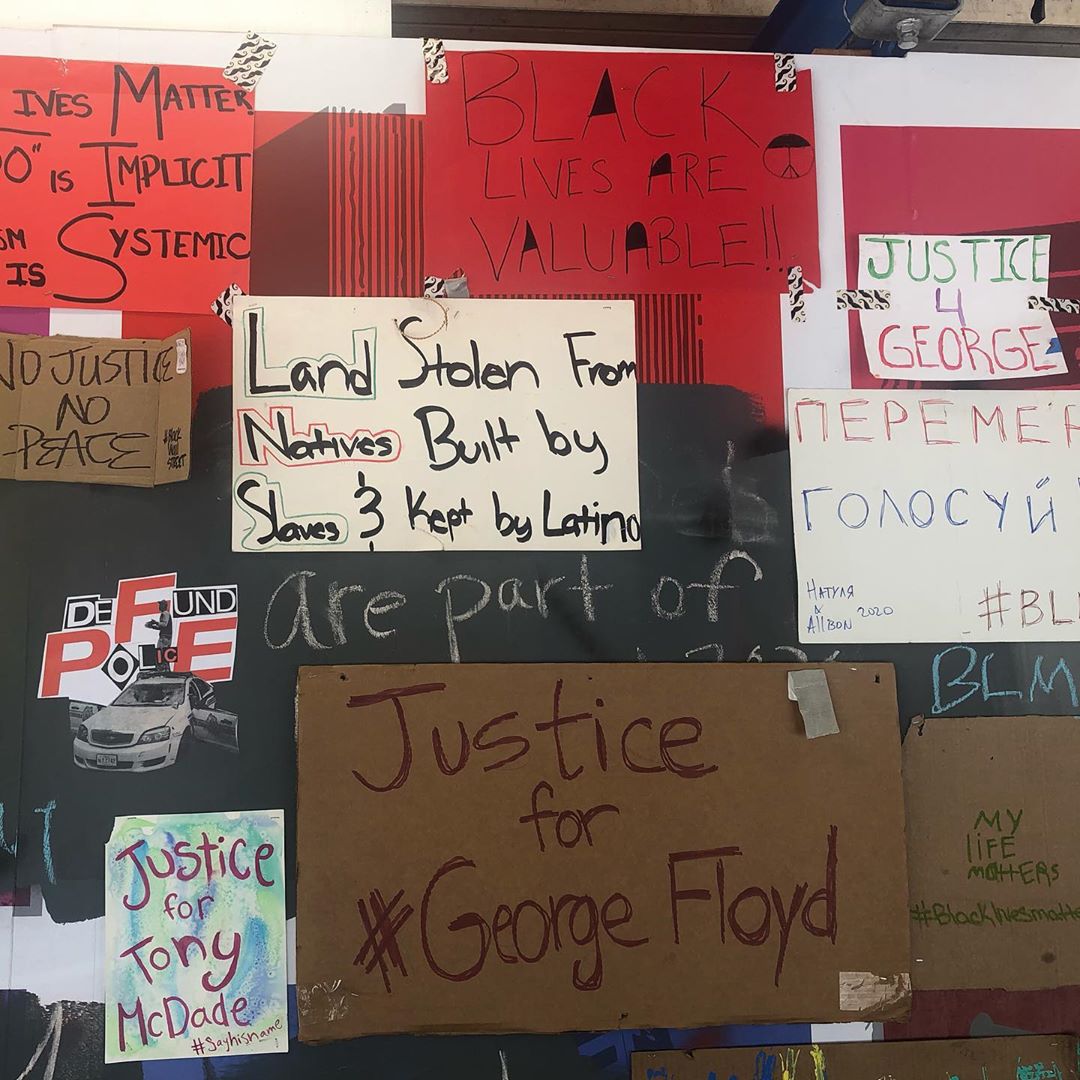 IVES MATTER
IS IMPLICIT
SYSTEMIC
IS
BLACK
LIVES ARE
VALUABLE!!
JUSTICE
4
GEORGE
NO JUSTICE
NO
PEACE
#BLACK
WALL
STREET
Land Stolen From
Natives Built by
Slaves & Kept by Latino
ПЕРЕМЕН
ГОЛОСУЙ
НАТУЛЯ
&
AllBON 2020
#BL
DEFUND
POLICE
are part of
BLM
Justice
for
#George Floyd
MY
LIFE
MATTERS
#Blacklivesmatte
Justice
for
Tony
McDade
#Sayhisname